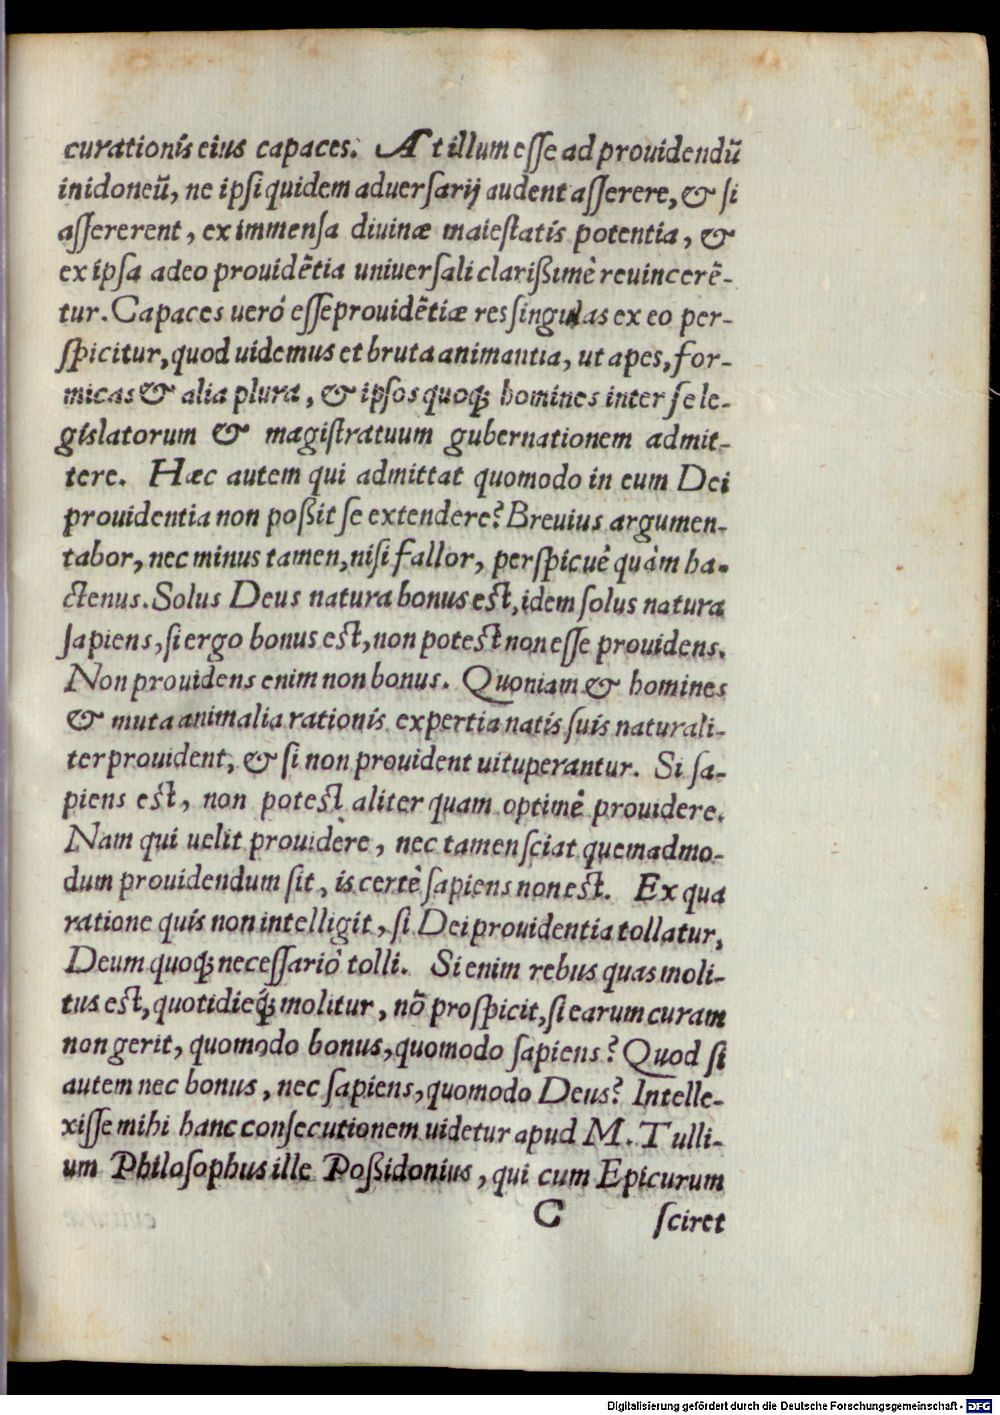 curationis eius capaces. At illum esse ad prouidendũ
inidoneũ, ne ipsi quidem aduersarij audent asserere, & si
assererent, ex immensa diuinæ maiestatis potentia, &
ex ipsa adeo prouidẽtia uniuersali clarißimè reuincerẽ-
tur. Capaces uerò esse prouidẽtiæ res singulas ex eo per-
spicitur, quod uidemus et bruta animantia, ut apes, for-
micas & alia plura, & ipsos quoq; homines inter se le-
gislatorum & magistratuum gubernationem admit-
tere. Hæc autem qui admittat quomodo in eum Dei
prouidentia non poßit se extendere? Breuius argumen-
tabor, nec minus tamen, nisi fallor, perspicuè quàm ha-
ctenus. Solus Deus natura bonus est, idem solus natura
sapiens, si ergo bonus est, non potest non esse prouidens.
Non prouidens enim non bonus. Quoniam & homines
& muta animalia rationis expertia natis suis naturali-
ter prouident, & si non prouident uituperantur. Si sa-
piens est, non potest aliter quam optimè prouidere.
Nam qui uelit prouidere, nec tamen sciat quemadmo-
dum prouidendum sit, is certè sapiens non est. Ex qua
ratione quis non intelligit, si Dei prouidentia tollatur,
Deum quoq; necessariò tolli. Si enim rebus quas moli-
tus est, quotidieq́; molitur, nõ prospicit, si earum curam
non gerit, quomodo bonus, quomodo sapiens? Quod si
autem nec bonus, nec sapiens, quomodo Deus? Intelle-
xisse mihi hanc consecutionem uidetur apud M. Tulli-
um Philosophus ille Poßidonius, qui cum Epicurum
C sciret
Digitalisierung gefördert durch die Deutsche Forschungsgemeinschaft - DFG